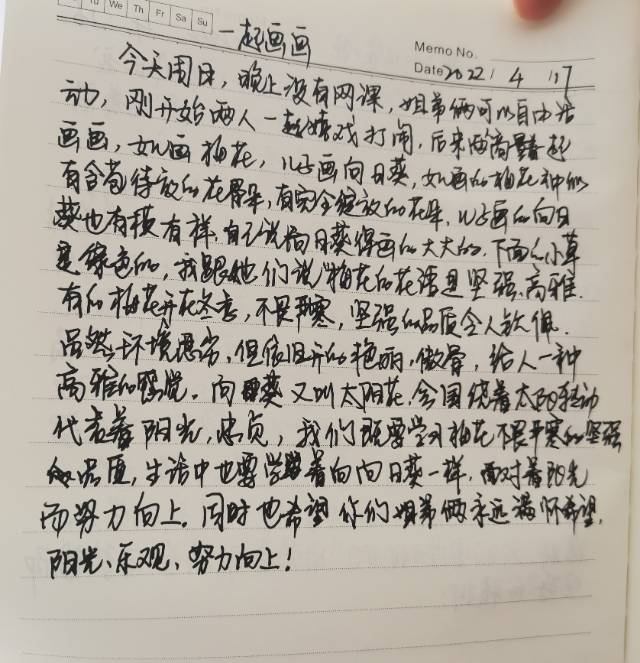 Tu We Th Fr Sa Su
Memo No.
Date 2022 / 4 / 17
一起画画
今天周日，晚上没有网课，姐弟俩可以自由活
动，刚开始两人一起嬉戏打闹，后来两商量一起
画画，如画梅花，儿子画向日葵，如画的梅花种的
有含苞待放的花骨朵，有完全绽放的花朵，儿子画的向日
葵也有模有样，自己说向日葵得画的大大的，下面的小草
是绿色的，我跟她们说"梅花的花语是坚强、高雅.
有的梅花开在冬季，不畏严寒，坚强的品质令人钦佩.
虽然环境恶劣，但依旧开的艳丽，傲骨，给人一种
高雅的感觉。向日葵又叫太阳花，会围绕着太阳转动
代表着阳光，忠贞，我们既要学习梅花不畏严寒的坚强
品质，生活中也要学着向向日葵一样，面对着阳光
而努力向上。同时也希望你们姐弟俩永远满怀希望，
阳光、乐观、努力向上！